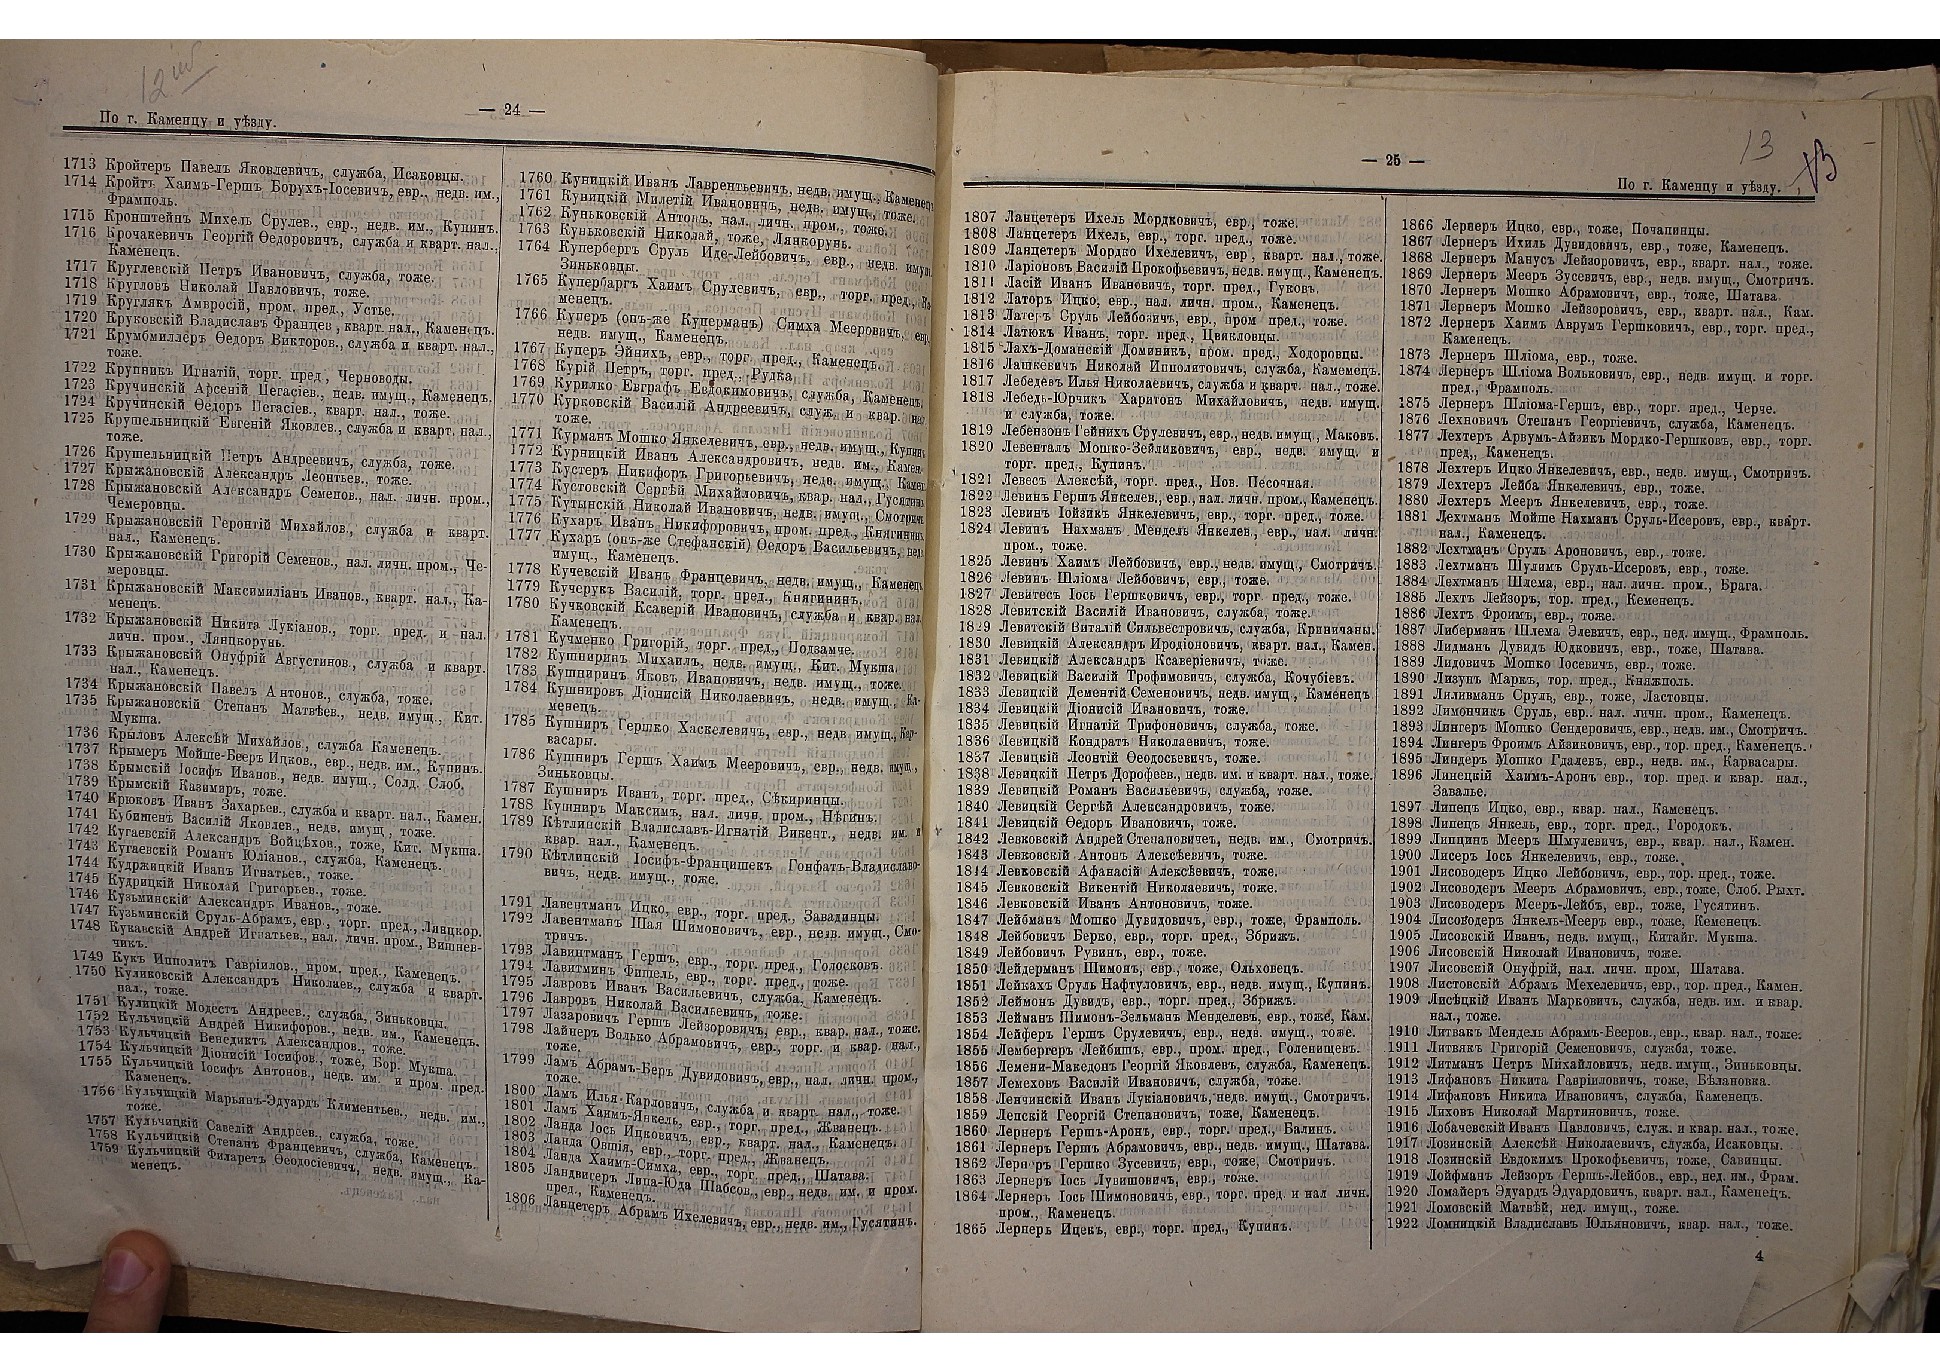 12
— 24 —
По г. Каменцу и уѣзду.
1713 Кройтеръ Павелъ Яковлевичъ, служба, Исаковцы.
1714 Кройтъ Хаимъ-Гершъ Борухъ-Іосевичъ, евр., недв. им.,
Фрамполь.
1715 Кронштейнъ Михель Срулев., евр., недв. им., Купинъ.
1716 Крочакевичъ Георгій Ѳедоровичъ, служба и кварт. нал.,
Каменецъ.
1717 Круглевскій Петръ Ивановичъ, служба, тоже.
1718 Кругловъ Николай Павловичъ, тоже.
1719 Круглякъ Амвросій, пром. пред., Устье.
1720 Круковскій Владиславъ Францев, кварт. нал., Каменецъ.
1721 Крумбмиллеръ Ѳедоръ Викторов., служба и кварт. нал.,
тоже.
1722 Крупникъ Игнатій, торг. пред, Черноводы.
1723 Кручинскій Арсеній Пегасіев., недв. имущ., Каменецъ.
1724 Кручинскій Ѳедоръ Пегасіев., кварт. нал., тоже.
1725 Крушельницкій Евгеній Яковлев., служба и кварт. нал.,
тоже.
1726 Крушельницкій Петръ Андреевичъ, служба, тоже.
1727 Крыжановскій Александръ Леонтьев., тоже.
1728 Крыжановскій Александръ Семенов., нал. личн. пром.,
Чемеровцы.
1729 Крыжановскій Геронтій Михайлов., служба и кварт.
нал., Каменецъ.
1730 Крыжановскій Григорій Семенов., нал. личн. пром., Че-
меровцы.
1731 Крыжановскій Максимиліанъ Иванов., кварт. нал., Ка-
менецъ.
1732 Крыжановскій Никита Лукіанов., торг. пред. и нал.
личн. пром., Лянцкорунь.
1733 Крыжановскій Онуфрій Августинов., служба и кварт.
нал., Каменецъ.
1734 Крыжановскій Павелъ Антонов., служба, тоже.
1735 Крыжановскій Степанъ Матвѣев., недв. имущ., Кит.
Мукша.
1736 Крыловъ Алексѣй Михайлов., служба Каменецъ.
1737 Крымеръ Мойше-Бееръ Ицков., евр., недв. им., Купинъ.
1738 Крымскій Іосифъ Иванов., недв. имущ., Солд. Слоб.
1739 Крымскій Казимиръ, тоже.
1740 Крюковъ Иванъ Захарьев., служба и кварт. нал., Камен.
1741 Кубишенъ Василій Яковлев., недв. имущ, тоже.
1742 Кугаевскій Александръ Войцѣхов., тоже, Кит. Мукша.
1743 Кугаевскій Романъ Юліанов., служба, Каменецъ.
1744 Кудржицкій Иванъ Игнатьев., тоже.
1745 Кудрицкій Николай Григорьев., тоже.
1746 Кузьминскій Александръ Иванов., тоже.
1747 Кузьминскій Сруль-Абрамъ, евр., торг. пред., Лянцкор.
1748 Кукавскій Андрей Игнатьев., нал. личн. пром., Вишнев-
чикъ.
1749 Кукъ Ипполитъ Гавріилов., пром. пред., Каменецъ.
1750 Куликовскій Александръ Николаев., служба и кварт.
нал., тоже.
1751 Кулицкій Модестъ Андреев., служба, Зиньковцы.
1752 Кульчицкій Андрей Никифоров., недв. им., Каменецъ.
1753 Кульчицкій Венедиктъ Александров., тоже.
1754 Кульчицкій Діонисій Іосифов., тоже, Бор. Мукша.
1755 Кульчицкій Іосифъ Антонов., недв. им. и пром. пред.
Каменецъ.
1756 Кульчицкій Марьянъ-Эдуардъ Климентьев., недв. им.,
тоже.
1757 Кульчицкій Савелій Андреев., служба, тоже.
1758 Кульчицкій Степанъ Францевичъ, служба, Каменецъ.
1759 Кульчицкій Филаретъ Ѳеодосіевичъ, недв. имущ., Ка-
менецъ.
1760 Куницкій Иванъ Лаврентьевичъ, недв. имущ., Каменец
1761 Куницкій Милетій Ивановичъ, недв. имущ., тоже.
1762 Куньковскій Антонъ, нал. личн. пром., тоже.
1763 Куньковскій Николай, тоже, Лянкорунь.
1764 Купербергъ Сруль Иде-Лейбовичъ, евр., недв. имущ
Зиньковцы.
1765 Купербаргъ Хаимъ Срулевичъ, евр., торг. пред., Ка-
менецъ.
1766 Куперъ (онъ-же Куперманъ) Симха Мееровичъ, евр.
недв. имущ., Каменецъ.
1767 Куперъ Эйнихъ, евр., торг. пред., Каменецъ.
1768 Курій Петръ, торг. пред., Рудка.
1769 Курилко Евграфъ Евдокимовичъ, служба, Каменецъ,
1770 Курковскій Василій Андреевичъ, служ. и квар. нал
тоже.
1771 Курманъ Мошко Янкелевичъ, евр., недв. имущ., Купинъ
1772 Курницкій Иванъ Александровичъ, недв. им., Камен
1773 Кустеръ Никифоръ Григорьевичъ, недв. имущ., Камен
1774 Кустовскій Сергѣй Михайловичъ, квар. нал., Гусятинъ
1775 Кутынскій Николай Ивановичъ, недв. имущ., Смотрич
1776 Кухаръ Иванъ Никифоровичъ, пром. пред., Княгинин
1777 Кухаръ (онъ-же Стефанскій) Ѳедоръ Васильевичъ, недв
имущ., Каменецъ.
1778 Кучевскій Иванъ Францевичъ, недв. имущ., Каменец
1779 Кучерукъ Василій, торг. пред., Княгининъ.
1780 Кучковскій Ксаверій Ивановичъ, служба и квар. нал
Каменецъ.
1781 Кучменко Григорій, торг. пред., Подзамче.
1782 Кушниринъ Михаилъ, недв. имущ., Кит. Мукша.
1783 Кушниринъ Яковъ Ивановичъ, недв. имущ., тоже.
1784 Кушнировъ Діонисій Николаевичъ, недв. имущ., Ка-
менецъ.
1785 Кушниръ Гершко Хаскелевичъ, евр., недв имущ., Кар-
васары.
1786 Кушниръ Гершъ Хаимъ Мееровичъ, евр., недв. имущ.,
Зиньковцы.
1787 Кушниръ Иванъ, торг. пред., Сѣкиринцы.
1788 Кушниръ Максимъ, нал. личн. пром., Нѣгинъ.
1789 Кѣтлинскій Владиславъ-Игнатій Викент., недв. им. и
квар. нал., Каменецъ.
1790 Кѣтлинскій Іосифъ-Францишекъ Гонфатъ-Владиславо-
вичъ, недв. имущ., тоже.
1791 Лавентманъ Ицко, евр., торг. пред., Завадинцы.
1792 Лавентманъ Шая Шимоновичъ, евр., недв. имущ., Смо-
тричъ.
1793 Лавинтманъ Гершъ, евр., торг. пред., Голосковъ.
1794 Лавитминъ Фишель, евр., торг. пред., тоже.
1795 Лавровъ Иванъ Васильевичъ, служба, Каменецъ.
1796 Лавровъ Николай Васильевичъ, тоже.
1797 Лазаровичъ Гершъ Лейзоровичъ, евр., квар. нал., тоже.
1798 Лайнеръ Волько Абрамовичъ, евр., торг. и квар. нал.,
тоже.
1799 Ламъ Абрамъ-Беръ Дувидовичъ, евр., нал. личн. пром.,
тоже.
1800 Ламъ Илья-Карловичъ, служба и кварт. нал., тоже.
1801 Ламъ Хаимъ-Янкель, евр., торг. пред., Жванецъ.
1802 Ланда Іось Ицковичъ, евр., кварт. нал., Каменецъ.
1803 Ланда Овшія, евр., торг. пред., Жванецъ.
1804 Ланда Хаимъ-Симха, евр., торг. пред., Шатава.
1805 Ландвигеръ Липа-Юда Шабсов., евр., недв. им. и пром.
пред., Каменецъ.
1806 Ланцетеръ Абрамъ Ихелевичъ, евр., недв. им., Гусятинъ.
13
13
— 25 —
По г. Каменцу и уѣзду.
1807 Ланцетеръ Ихель Мордковичъ, евр., тоже.
1808 Ланцетеръ Ихель, евр., торг. пред., тоже.
1809 Ланцетеръ Мордко Ихелевичъ, евр, кварт. нал., тоже.
1810 Ларіоновъ Василій Прокофьевичъ, недв. имущ., Каменецъ.
1811 Ласій Иванъ Ивановичъ, торг. пред., Гуковъ.
1812 Латоръ Ицко, евр., нал. личн. пром., Каменецъ.
1813 Латеръ Сруль Лейбовичъ, евр., пром пред., тоже.
1814 Латюкъ Иванъ, торг. пред., Цвикловцы.
1815 Лахъ-Доманскій Доминикъ, пром. пред., Ходоровцы.
1816 Лашкевичъ Николай Ипполитовичъ, служба, Камемецъ.
1817 Лебедевъ Илья Николаевичъ, служба и кварт. нал., тоже.
1818 Лебедь-Юрчикъ Харитонъ Михайловичъ, недв. имущ.
и служба, тоже.
1819 Лебензонъ Гейнихъ Срулевичъ, евр., недв. имущ., Маковъ.
1820 Левенталъ Мошко-Зейликовичъ, евр., недв. имущ. и
торг. пред., Купинъ.
1821 Левесъ Алексѣй, торг. пред., Нов. Песочная.
1822 Левинъ Гершъ Янкелев., евр., нал. личн. пром., Каменецъ.
1823 Левинъ Іойзикъ Янкелевичъ, евр., торг. пред., тоже.
1824 Левинъ Нахманъ Мендель Янкелев., евр., нал. личн.
пром., тоже.
1825 Левинъ Хаимъ Лейбовичъ, евр., недв. имущ., Смотричъ.
1826 Левинъ Шліома Лейбовичъ, евр., тоже.
1827 Левитесъ Іось Гершковичъ, евр., торг. пред., тоже.
1828 Левитскій Василій Ивановичъ, служба, тоже.
1829 Левитскій Виталій Сильвестровичъ, служба, Криничаны.
1830 Левицкій Александръ Иродіоновичъ, кварт. нал., Камен.
1831 Левицкій Александръ Ксаверіевичъ, тоже.
1832 Левицкій Василій Трофимовичъ, служба, Кочубіев.
1833 Левицкій Дементій Семеновичъ, недв. имущ., Каменецъ
1834 Левицкій Діонисій Ивановичъ, тоже.
1835 Левицкій Игнатій Трифоновичъ, служба, тоже.
1836 Левицкій Кондратъ Николаевичъ, тоже.
1837 Левицкій Леонтій Ѳеодосьевичъ, тоже.
1838 Левицкій Петръ Дорофеев., недв. им. и кварт. нал., тоже.
1839 Левицкій Романъ Васильевичъ, служба, тоже.
1840 Левицкій Сергѣй Александровичъ, тоже.
1841 Левицкій Ѳедоръ Ивановичъ, тоже.
1842 Левковскій Андрей Степановичъ, недв. им., Смотричъ.
1843 Левковскій Антонъ Алексѣевичъ, тоже.
1844 Левковскій Афанасій Алексѣевичъ, тоже.
1845 Левковскій Викентій Николаевичъ, тоже.
1846 Левковскій Иванъ Антоновичъ, тоже.
1847 Лейбманъ Мошко Дувидовичъ, евр., тоже, Фрамполь.
1848 Лейбовичъ Берко, евр., торг. пред., Збрижъ.
1849 Лейбовичъ Рувинъ, евр., тоже.
1850 Лейдерманъ Шимонъ, евр., тоже, Ольховецъ.
1851 Лейкахъ Сруль Нафтуловичъ, евр., недв. имущ., Купинъ.
1852 Леймонъ Дувидъ, евр., торг. пред., Збрижъ.
1853 Лейман Шимонъ-Зельманъ Менделевъ, евр., тоже, Кам.
1854 Лейферъ Гершъ Срулевичъ, евр., недв. имущ., тоже.
1855 Лембергеръ Лейбишъ, евр., пром. пред., Голенищевъ.
1856 Лемени-Македонъ Георгій Яковлев., служба, Каменецъ.
1857 Лемеховъ Василій Ивановичъ, служба, тоже.
1858 Ленчинскій Иванъ Лукіановичъ, недв. имущ., Смотричъ.
1859 Лепскій Георгій Степановичъ, тоже, Каменецъ.
1860 Лернеръ Гершъ-Аронъ, евр., торг. пред., Балинъ.
1861 Лернеръ Гершъ Абрамовичъ, евр., недв. имущ., Шатава.
1862 Лернеръ Гершко Зусевичъ, евр., тоже, Смотричъ.
1863 Лернеръ Іось Лувишовичъ, евр., тоже.
1864 Лернеръ Іось Шимоновичъ, евр., торг. пред. и нал личн.
пром., Каменецъ.
1865 Лернеръ Ицекъ, евр., торг. пред., Купинъ.
1866 Лернеръ Ицко, евр., тоже, Почапинцы.
1867 Лернеръ Ихиль Дувидовичъ, евр., тоже, Каменецъ.
1868 Лернеръ Манусъ Лейзоровичъ, евр., кварт. нал., тоже.
1869 Лернеръ Мееръ Зусевичъ, евр., недв. имущ., Смотричъ.
1870 Лернеръ Мошко Абрамовичъ, евр., тоже, Шатава.
1871 Лернеръ Мошко Лейзоровичъ, евр., кварт. нал., Кам.
1872 Лернеръ Хаимъ Аврумъ Гершковичъ, евр., торг. пред.,
Каменецъ.
1873 Лернеръ Шліома, евр., тоже.
1874 Лернеръ Шліома Вольковичъ, евр., недв. имущ. и торг.
пред., Фрамполь.
1875 Лернеръ Шліома-Гершъ, евр., торг. пред., Черче.
1876 Лехновичъ Степанъ Георгіевичъ, служба, Каменецъ.
1877 Лехтеръ Арвумъ-Айзикъ Мордко-Гершковъ, евр., торг.
пред., Каменецъ.
1878 Лехтеръ Ицко Янкелевичъ, евр., недв. имущ., Смотричъ.
1879 Лехтеръ Лейба Янкелевичъ, евр., тоже.
1880 Лехтеръ Мееръ Янкелевичъ, евр., тоже.
1881 Лехтманъ Мойше Нахманъ Сруль-Исеровъ, евр., кварт.
нал., Каменецъ.
1882 Лехтманъ Сруль Ароновичъ, евр., тоже.
1883 Лехтманъ Шулимъ Сруль-Исеровъ, евр., тоже.
1884 Лехтманъ Шлема, евр., нал. личн. пром., Брага.
1885 Лехтъ Лейзоръ, тор. пред., Кеменецъ.
1886 Лехтъ Фроимъ, евр., тоже.
1887 Либерманъ Шлема Элевичъ, евр., нед. имущ., Фрамполь.
1888 Лидманъ Дувидъ Юдковичъ, евр., тоже, Шатава.
1889 Лидовичъ Мошко Іосевичъ, евр., тоже.
1890 Лизунъ Маркъ, тор. пред., Княжполь.
1891 Лиливманъ Сруль, евр., тоже, Ластовцы.
1892 Лимончикъ Сруль, евр.. нал. личн. пром., Каменецъ.
1893 Лингеръ Мошко Сендеровичъ, евр., недв. им., Смотричъ.
1894 Лингеръ Фроимъ Айзиковичъ, евр., тор. пред., Каменецъ.
1895 Линдеръ Мошко Гдалевъ, евр., недв. им., Карвасары.
1896 Линецкій Хаимъ-Аронъ евр., тор. пред. и квар. нал.,
Завалье.
1897 Липецъ Ицко, евр., квар. нал., Каменецъ.
1898 Липецъ Янкель, евр., торг. пред., Городокъ.
1899 Липцинъ Мееръ Шмулевичъ, евр., квар. нал., Камен.
1900 Лисеръ Іось Янкелевичъ, евр., тоже.
1901 Лисоводеръ Ицко Лейбовичъ, евр., тор. пред., тоже.
1902 Лисоводеръ Мееръ Абрамовичъ, евр., тоже, Слоб. Рыхт.
1903 Лисоводеръ Мееръ-Лейбъ, евр., тоже, Гусятинъ.
1904 Лисоводеръ Янкель-Мееръ евр., тоже, Кеменецъ.
1905 Лисовскій Иванъ, недв. имущ., Китайг. Мукша.
1906 Лисовскій Николай Ивановичъ, тоже.
1907 Лисовскій Онуфрій, нал. личн. пром, Шатава.
1908 Листовскій Абрамъ Мехелевичъ, евр., тор. пред., Камен.
1909 Лисѣцкій Иванъ Марковичъ, служба, недв. им. и квар.
нал., тоже.
1910 Литвакъ Мендель Абрамъ-Бееров., евр., квар. нал., тоже.
1911 Литвякъ Григорій Семеновичъ, служба, тоже.
1912 Литманъ Петръ Михайловичъ, недв. имущ., Зиньковцы.
1913 Лифановъ Никита Гавріиловичъ, тоже, Бѣлановка.
1914 Лифановъ Никита Ивановичъ, служба, Каменецъ.
1915 Лиховъ Николай Мартиновичъ, тоже.
1916 Лобачевскій Иванъ Павловичъ, служ. и квар. нал., тоже.
1917 Лозинскій Алексѣй Николаевичъ, служба, Исаковцы.
1918 Лозинскій Евдокимъ Прокофьевичъ, тоже, Савинцы.
1919 Лойфманъ Лейзоръ Гершъ-Лейбов., евр., нед. им., Фрам.
1920 Ломайеръ Эдуардъ Эдуардовичъ, кварт. нал., Каменецъ.
1921 Ломовскій Матвѣй, нед. имущ., тоже.
1922 Ломницкій Владиславъ Юльяновичъ, квар. нал., тоже.
4